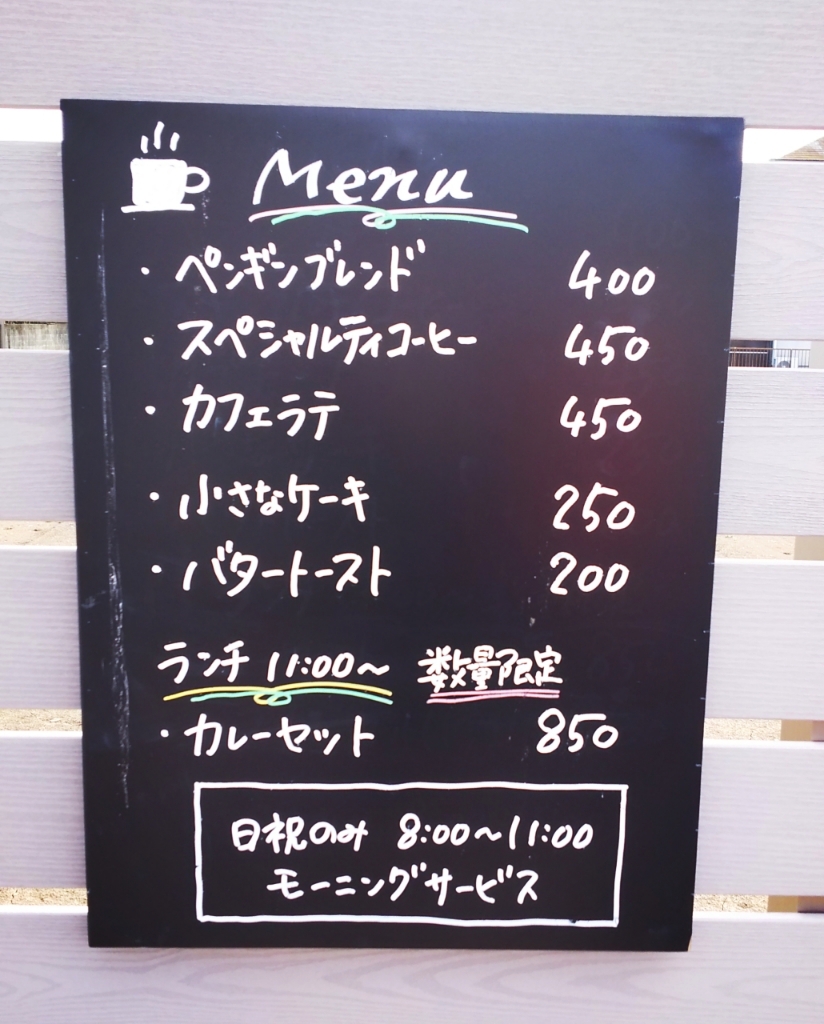 Menu
・ペンギンブレンド 400
・スペシャルティコーヒー 450
・カフェラテ 450
・小さなケーキ 250
・バタートースト 200
ランチ 11:00〜 数量限定
・カレーセット 850
日祝のみ 8:00〜11:00
モーニングサービス